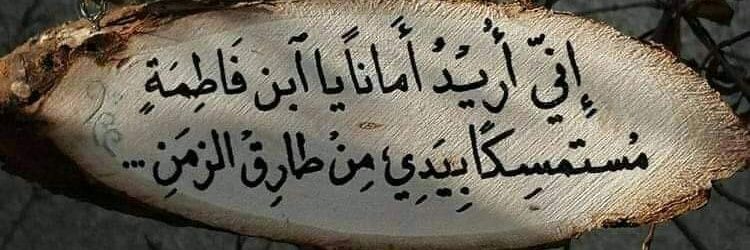 إِنّي أُرِيْدُ أَمَاناً يا آبن فَاطِمَةٍ
مُستمسِكًا بِيَدِي مِنْ طارِقِ الزمَنِ ...